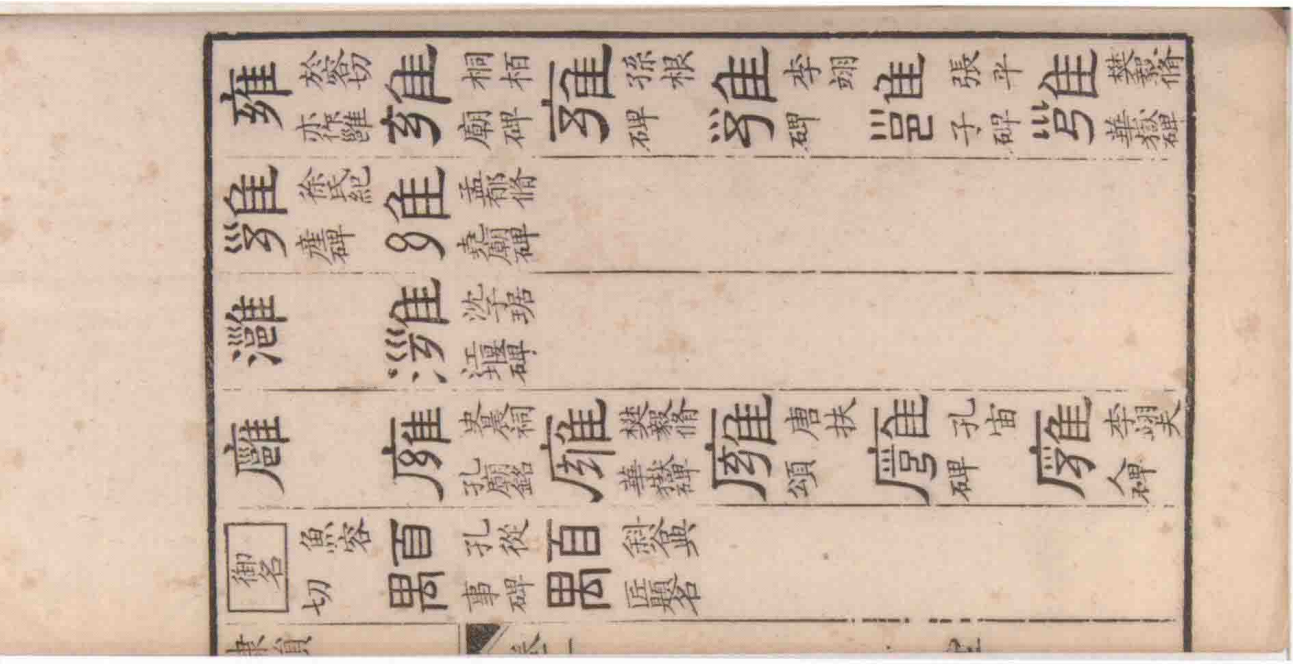 雍 於容切亦作雝 雍 桐栢廟碑 雍 孫根碑 雍 李翊碑 雝 張平子碑 雍 樊毅脩華嶽碑
雍 徐氏紀產碑 雍 孟郁脩堯廟碑
灉 灉 沈子琚江堰碑
廱 廱 史晨祠孔廟銘 廱 樊毅脩華嶽碑 廱 唐扶頌 廱 孔宙碑 廱 李翊夫人碑
御名 魚容切 顒 孔從事碑 顒 斜谷匠題名